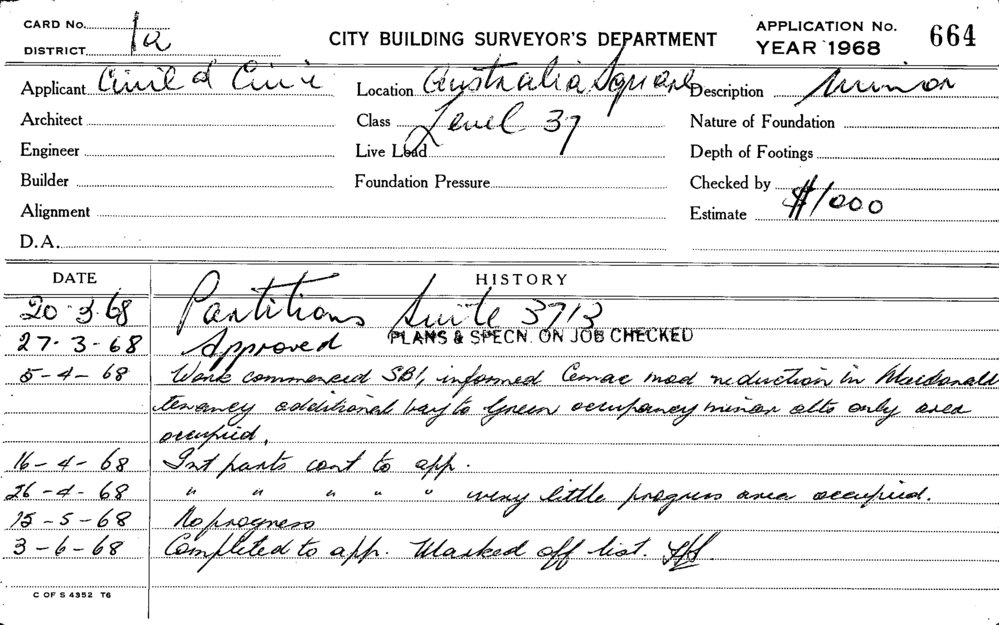 CARD No. 1a
DISTRICT
CITY BUILDING SURVEYOR'S DEPARTMENT
APPLICATION No. 664
YEAR 1968
Applicant Civil & Civic
Location Australia Square
Description Minor
Architect
Class Level 37
Nature of Foundation
Engineer
Live Load
Depth of Footings
Builder
Foundation Pressure
Checked by
Alignment
Estimate $1000
D.A.
DATE HISTORY
20·3·68 Partitions Suite 3713
27·3-68 Approved PLANS & SPECN. ON JOB CHECKED
5-4-68 Work commenced SBI, informed Cemac mod reduction in Macdonald
tenancy additional bay to Green occupancy minor alts only area
occupied.
16-4-68 Int parts cont to app.
26-4-68 " " " " " very little progress area occupied.
15-5-68 No progress
3-6-68 Completed to app. Marked off list.
C OF S 4352 T6